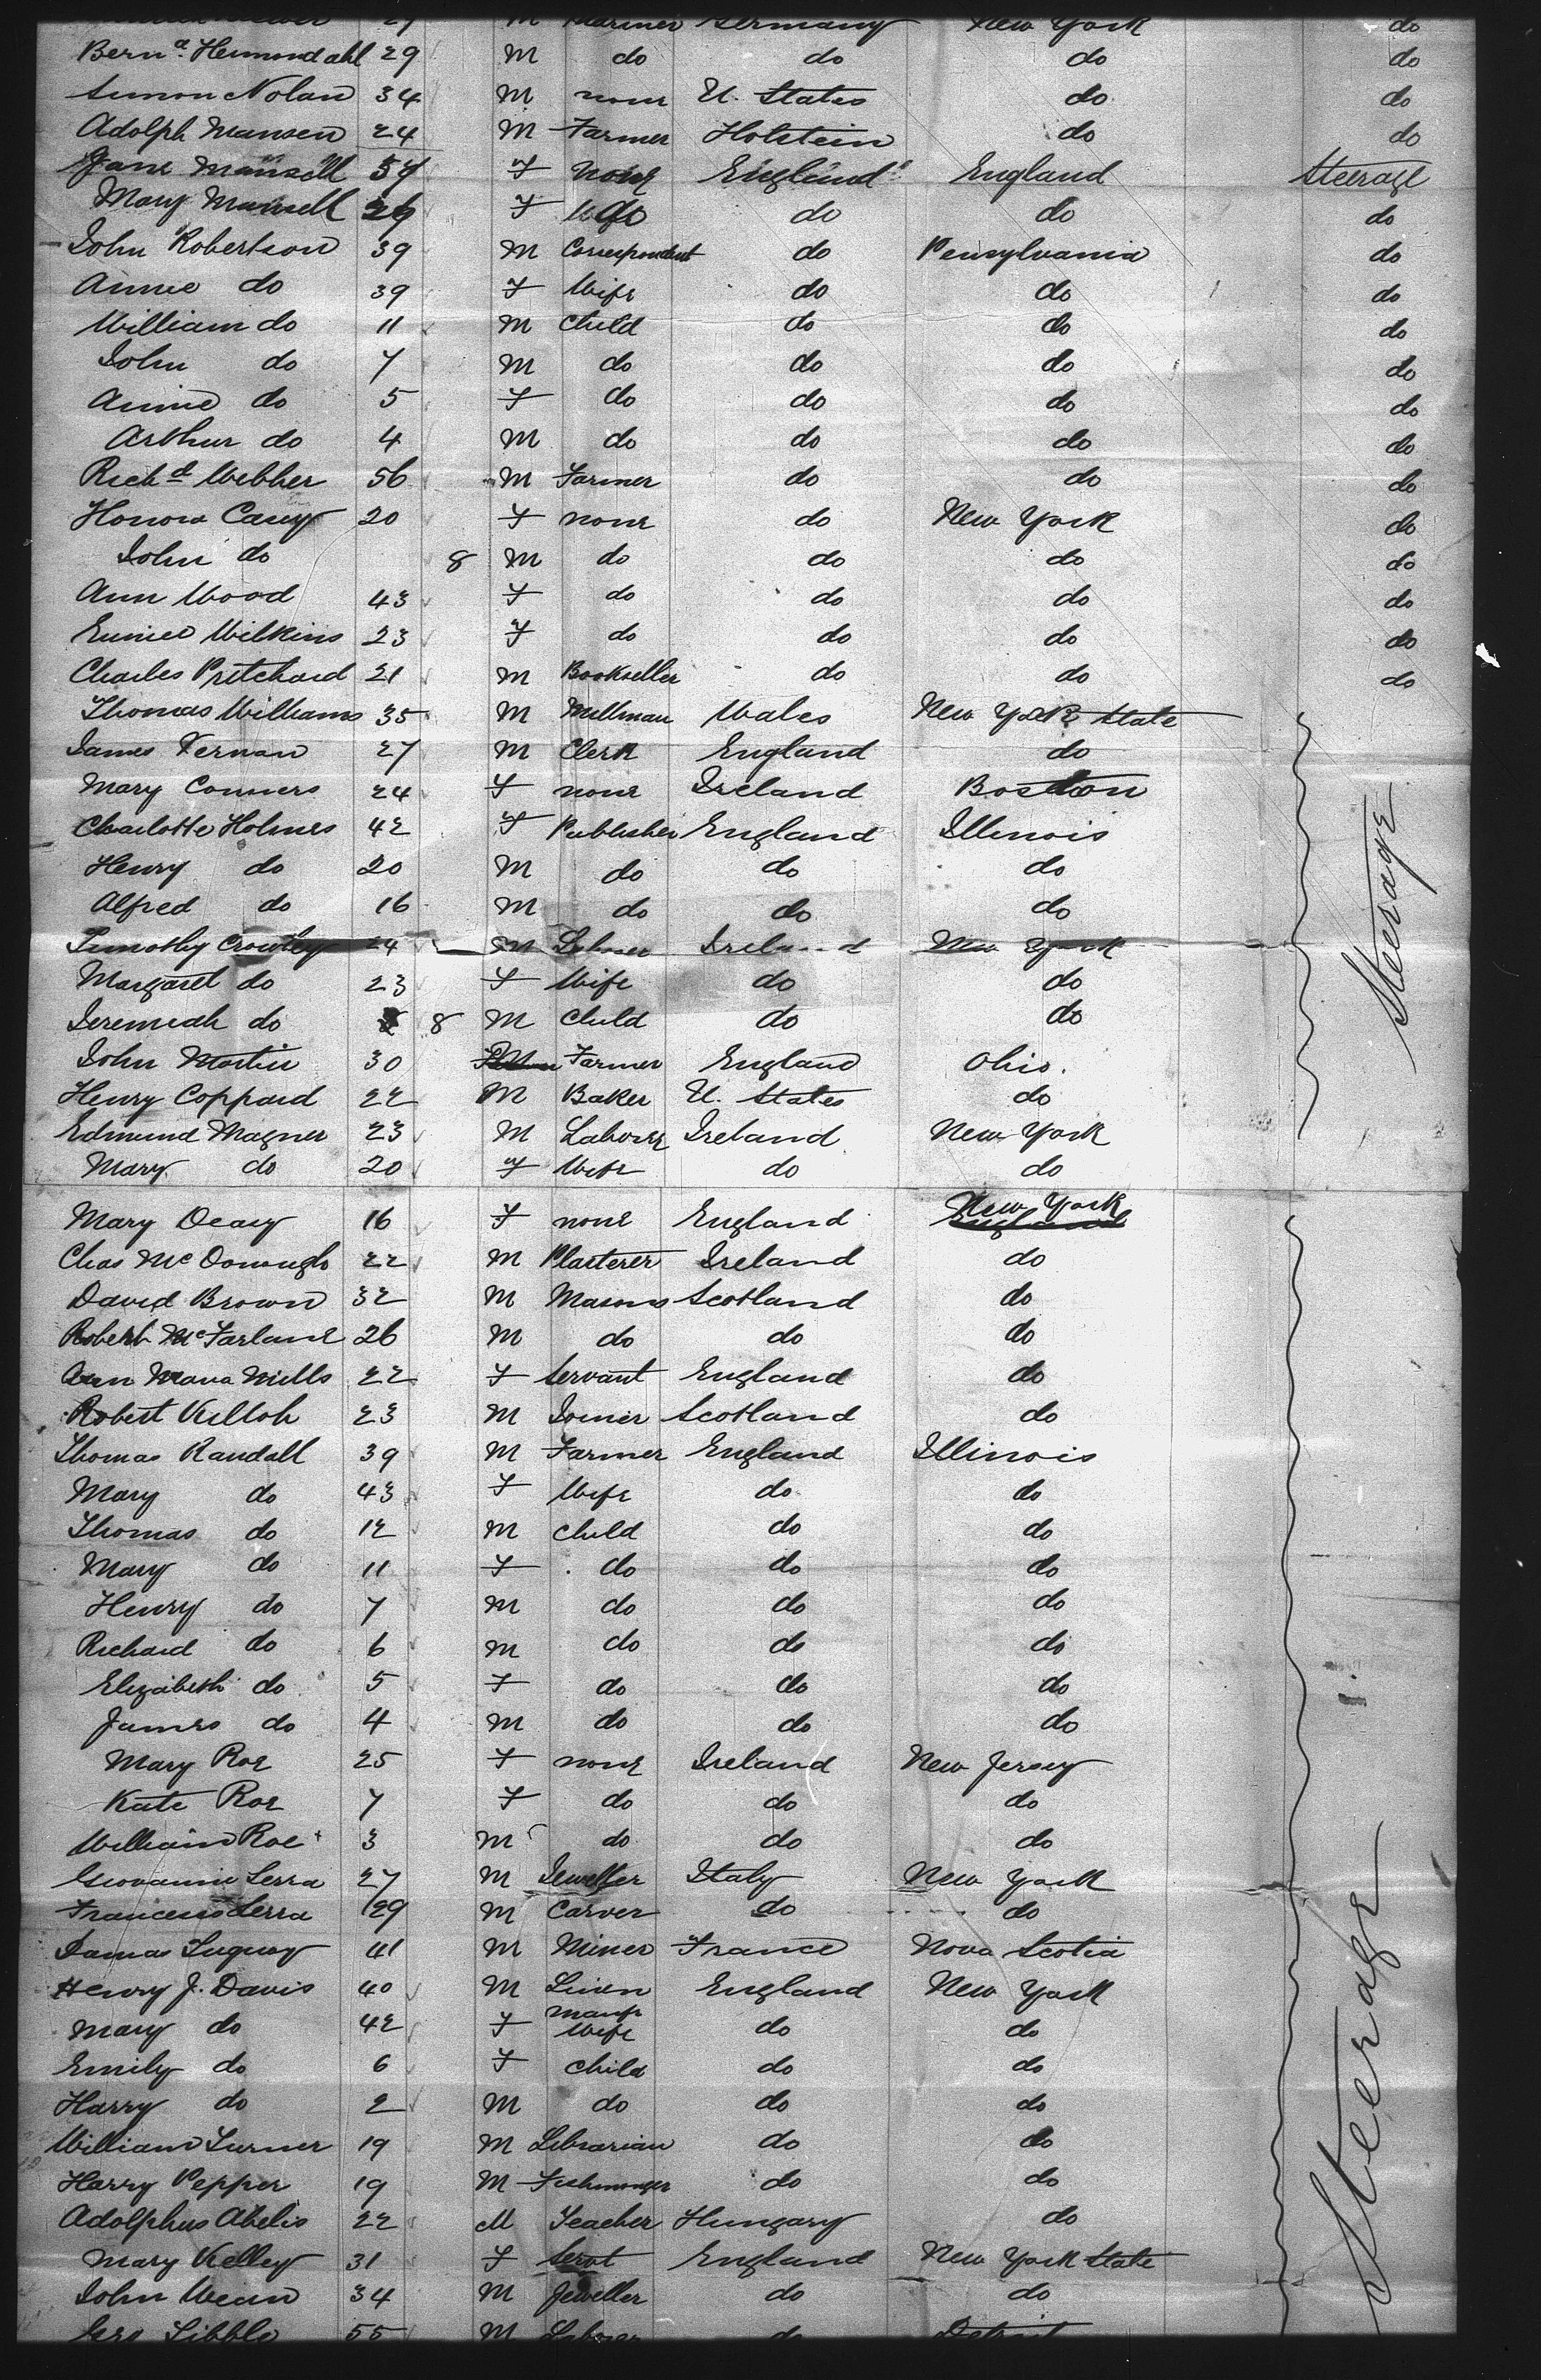 29 M Mariner Germany New York do
Bern.d Hemmondahl 29 M do do do do
Simon Nolan 34 M none U. States do do
Adolph Mansen 24 M Farmer Holstein do do
Jane Mansell 54 F none England England Steerage
Mary Mansell 26 F do do do do
John Robertson 39 M Correspondent do Pensylvania do
Annie do 39 F Wife do do do
William do 11 M Child do do do
John do 7 M do do do do
Annie do 5 F do do do do
Arthur do 4 M do do do do
Richd Webber 56 M Farmer do do do
Honora Casey 20 F none do New York do
John do 8 M do do do do
Ann Wood 43 F do do do do
Eunice Wilkins 23 F do do do do
Charles Pritchard 21 M Bookseller do do do
Thomas Williams 35 M Millman Wales New York State
James Vernan 27 M Clerk England do
Mary Conners 24 F none Ireland Boston
Charlotte Holmes 42 F Publisher England Illinois
Henry do 20 M do do do
Alfred do 16 M do do do
Steerage
Timothy Crowley 24 M Laborer Ireland New York
Margaret do 23 F Wife do do
Jeremiah do 8 M Child do do
John Martin 30 M Farmer England Ohio.
Henry Coppard 22 M Baker U. States do
Edmund Magner 23 M Laborer Ireland New York
Mary do 20 F Wife do do
Mary Deay 16 F none England New York
Chas McDonough 22 M Plasterer Ireland do
David Brown 32 M Masons Scotland do
Robert McFarlane 26 M do do do
Ann Maria Mills 22 F Servant England do
Robert Killoh 23 M Joiner Scotland do
Thomas Randall 39 M Farmer England Illinois
Mary do 43 F Wife do do
Thomas do 12 M Child do do
Mary do 11 F do do do
Henry do 7 M do do do
Richard do 6 M do do do
Elizabeth do 5 F do do do
James do 4 M do do do
Mary Roe 25 F none Ireland New Jersey
Kate Roe 7 F do do do
William Roe 3 M do do do
Giovanni Serra 27 M Jeweller Italy New York
Francesco Serra 29 M Carver do do
Steerage
41 M Miner France Nova Scotia
Henry J. Davis 40 M Linen Manfr England New York
Mary do 42 F Wife do do
Emily do 6 F Child do do
Harry do 2 M do do do
William Turner 19 M Librarian do do
Harry Pepper 19 M Fishmonger do do
Adolphus Abelis 22 M Teacher Hungary do
Mary Kelley 31 F Servt England New York State
John Wean 34 M Jeweller do do
Geo Tibble 55 M Laborer do Detroit